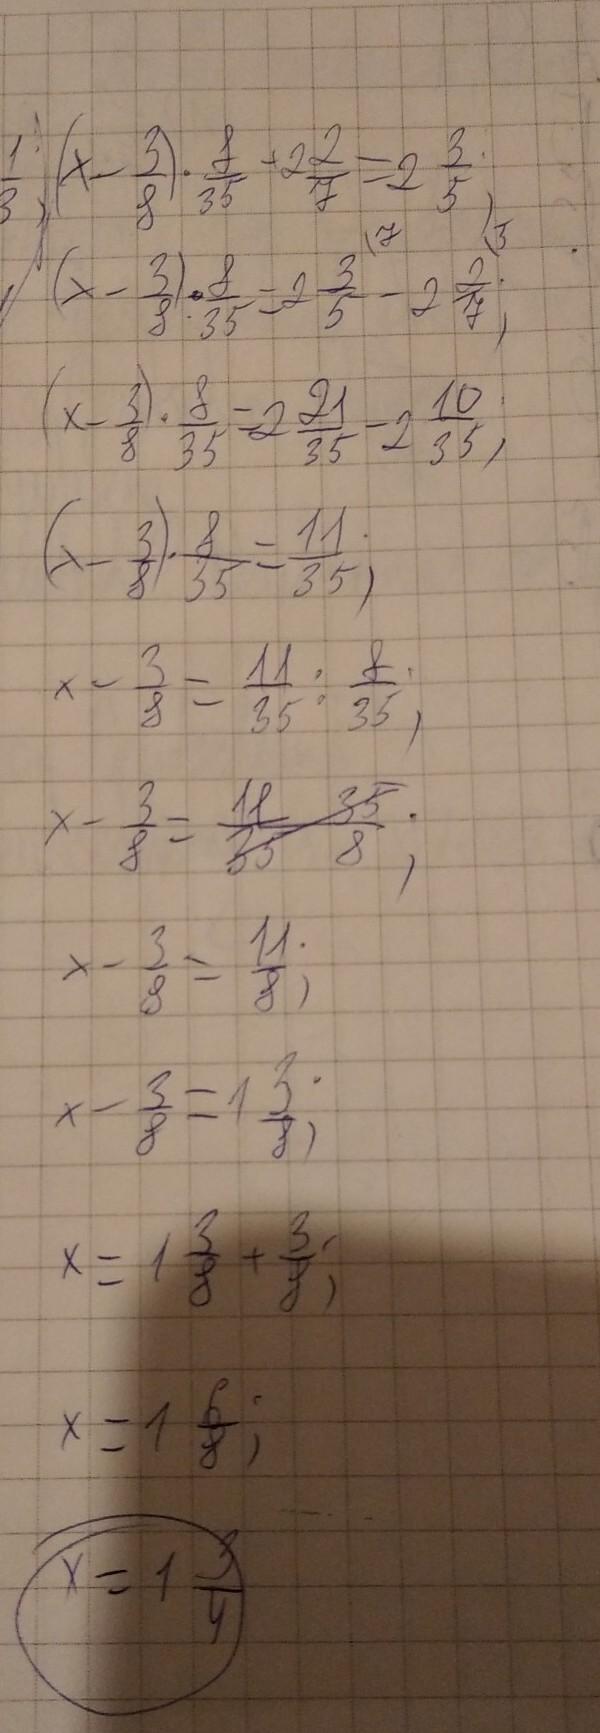 1/3; (x - 3/8) · 8/35 + 2 2/7 = 2 3/5;
(x - 3/8) · 8/35 = 2 3/5 (7 - 2 2/7 (5;
(x - 3/8) · 8/35 = 2 21/35 - 2 10/35;
(x - 3/8) · 8/35 = 11/35;
x - 3/8 = 11/35 : 8/35;
x - 3/8 = 11/35 35/8;
x - 3/8 = 11/8;
x - 3/8 = 1 3/8;
x = 1 3/8 + 3/8;
x = 1 6/8;
x = 1 3/4